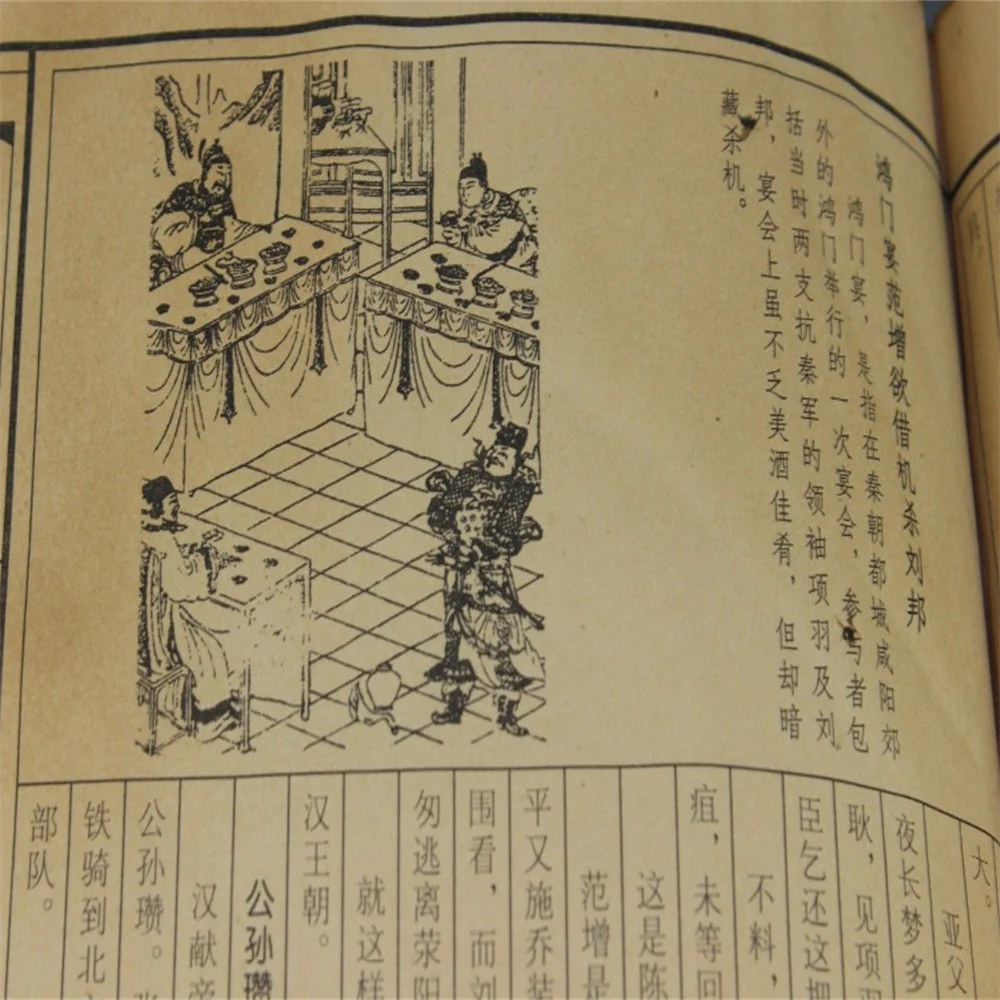 鸿门宴范增欲借机杀刘邦
鸿门宴，是指在秦朝都城咸阳郊
外的鸿门举行的一次宴会，参与者包
括当时两支抗秦军的领袖项羽及刘
邦，宴会上虽不乏美酒佳肴，但却暗
藏杀机。
大。
亚父
夜长梦多
耿，见项羽
臣乞还这把
不料，
疽，未等回
这是陈
范增是
平又施乔装
围看，而刘
匆逃离荥阳
就这样
汉王朝。
公孙瓒
汉献帝
公孙瓒。
铁骑到北
部队。